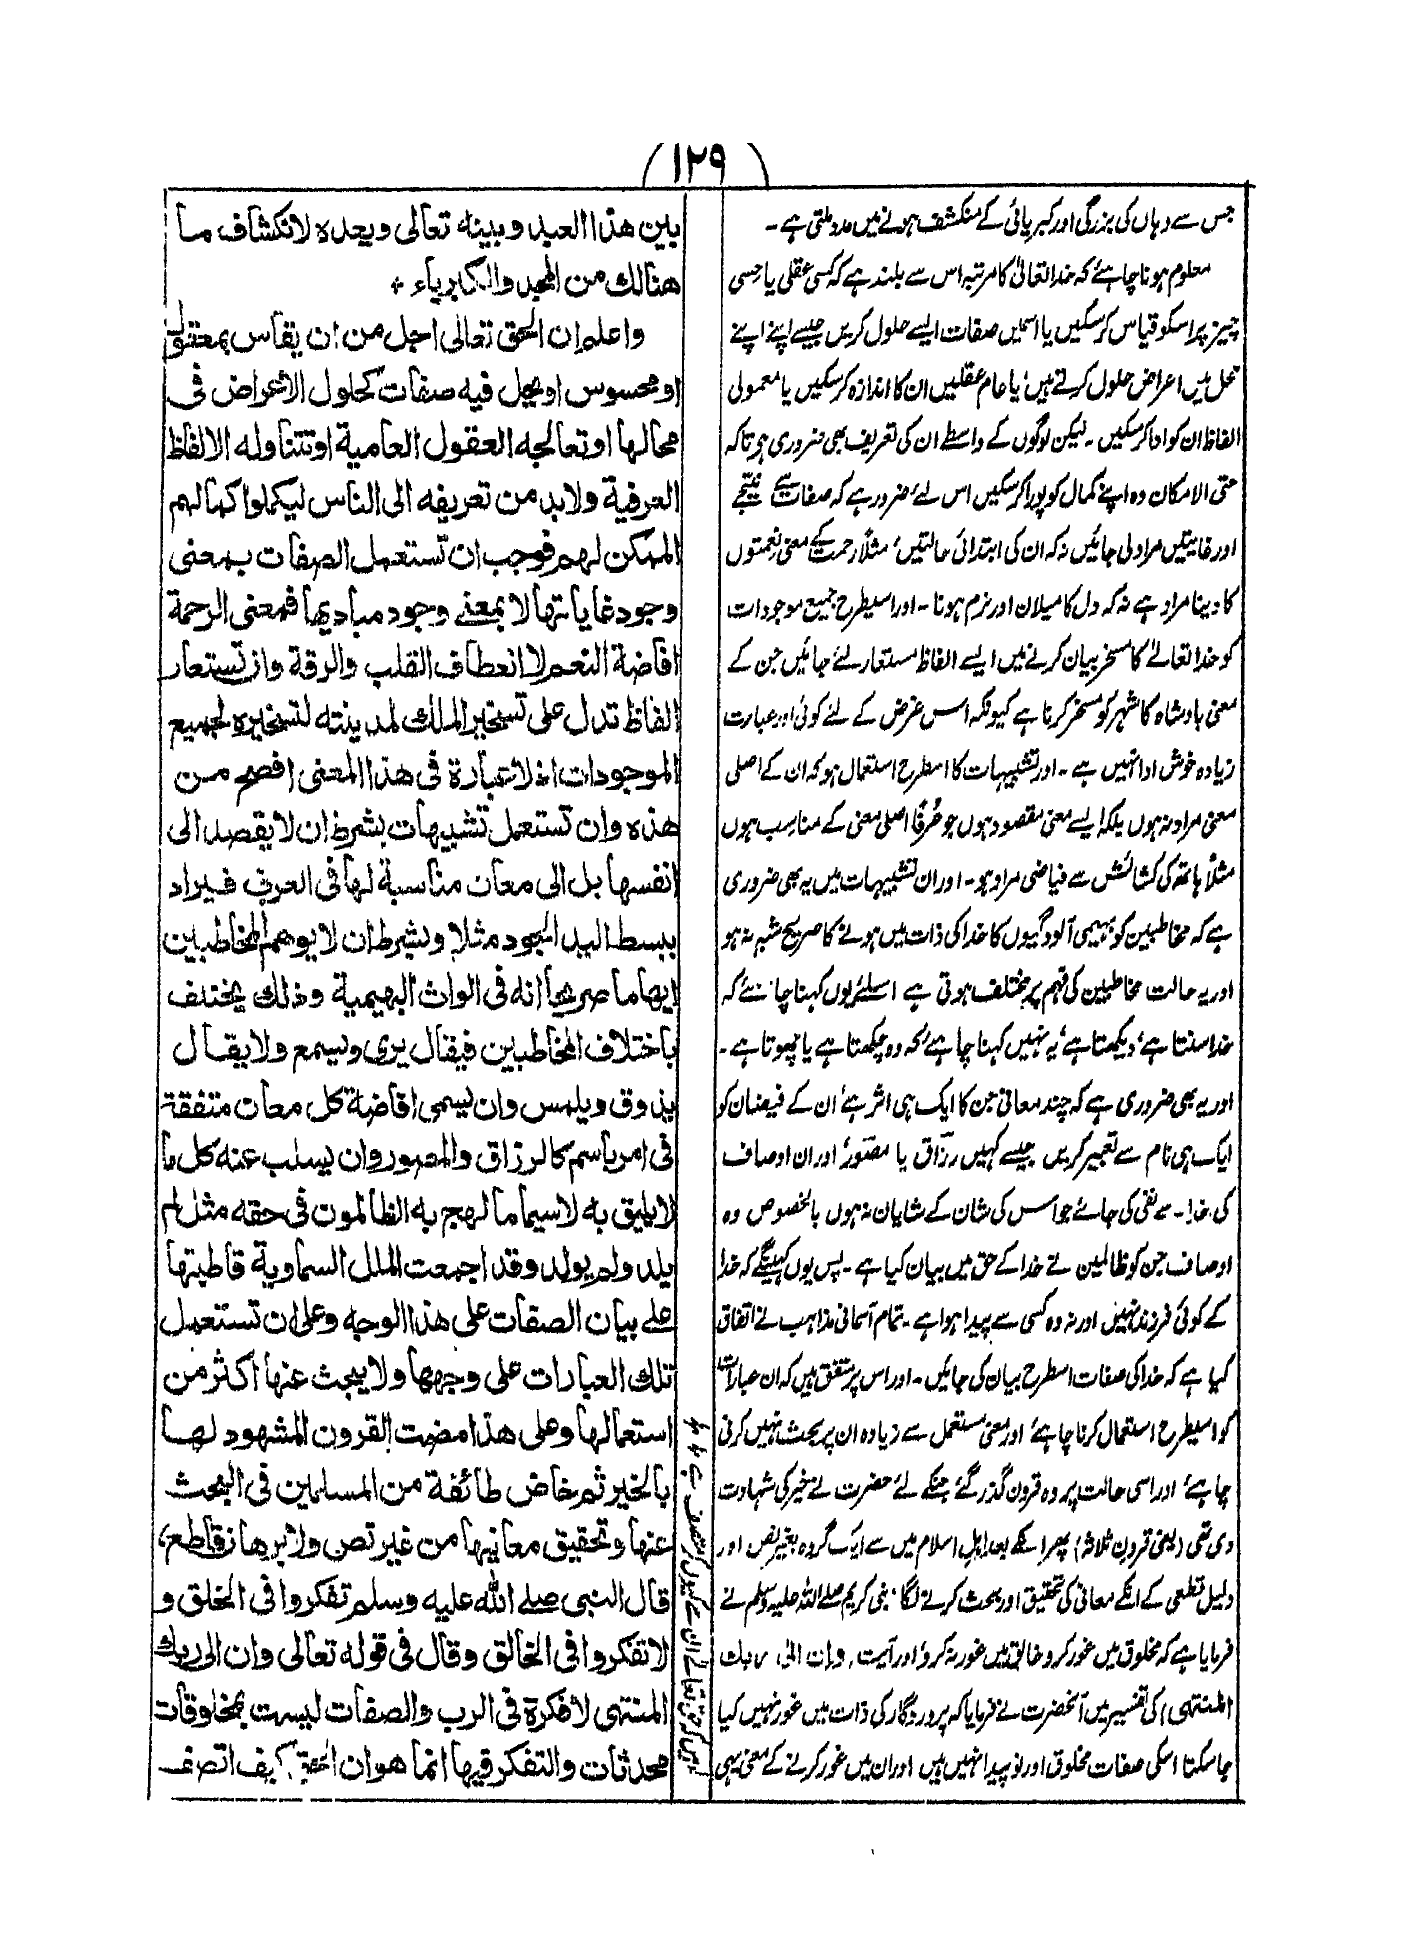 (۱۲۹)
جس سے وہاں کی بزرگی اور کبریائی کے منکشف ہونے میں مدد ملتی ہے ۔
معلوم ہونا چاہئے کہ خدا تعالیٰ کا مرتبہ اس سے بلند ہے کہ کسی عقلی یا حسی
چیز پر اسکو قیاس کر سکیں یا اسمیں صفات ایسے حلول کریں جیسے اپنے اپنے
محل میں اعراض حلول کرتے ہیں، یا عام عقلیں ان کا اندازہ کر سکیں یا معمولی
الفاظ ان کو ادا کر سکیں ۔ لیکن لوگوں کے واسطے ان کی تعریف بھی ضروری ہی تاکہ
حتی الامکان وہ اپنے کمال کو پورا کر سکیں اس لئے ضرور ہے کہ صفات سے نتیجے
اور غایتیں مراد لی جائیں نہ کہ ان کی ابتدائی حالتیں، مثلاً رحمت کے معنی نعمتوں
کا دینا مراد ہے نہ کہ دل کا میلان اور نرم ہونا ۔ اور اسیطرح جمیع موجودات
کو خدا تعالےٰ کا مسخر بیان کرنے میں ایسے الفاظ مستعار لئے جائیں جن کے
معنی بادشاہ کا شہر کو مسخر کرنا ہے کیونکہ اس غرض کے لئے کوئی اور عبارت
زیادہ خوش ادا نہیں ہے ۔ اور تشبیہات کا اسطرح استعمال ہو کہ ان کے اصلی
معنی مراد نہ ہوں بلکہ ایسے معنی مقصود ہوں جو عُرفًا اصلی معنی کے مناسب ہوں
مثلاً ہاتھ کی کشائش سے فیاضی مراد ہو ۔ اور ان تشبیہات میں یہ بھی ضروری
ہے کہ مخاطبین کو بہیمی آلودگیوں کا خدا کی ذات میں ہونے کا صریح شبہ نہ ہو
اور یہ حالت مخاطبین کی فہم پر مختلف ہوتی ہے اسلئے یوں کہنا چاہئے کہ
خدا سنتا ہے، دیکھتا ہے، یہ نہیں کہنا چاہئے کہ وہ چکھتا ہے یا چھوتا ہے ۔
اور یہ بھی ضروری ہے کہ چند معانی جن کا ایک ہی اثر ہے، ان کے فیضان کو
ایک ہی نام سے تعبیر کریں جیسے کہیں رزّاق یا مصّور، اور ان اوصاف
کی خدا سے نفی کی جائے جو اس کی شان کے شایان نہ ہوں بالخصوص وہ
اوصاف جن کو ظالمین نے خدا کے حق میں بیان کیا ہے ۔ پس یوں کہینگے کہ خدا
کے کوئی فرزند نہیں اور نہ وہ کسی سے پیدا ہوا ہے ۔ تمام آسمانی مذاہب نے اتفاق
کیا ہے کہ خدا کی صفات اسطرح بیان کی جائیں ۔ اور اس پر متفق ہیں کہ ان عبارات
کو اسیطرح استعمال کرنا چاہئے، اور معنی مستعمل سے زیادہ ان پر بحث نہیں کرنی
چاہئے، اور اسی حالت پر وہ قرون گذر گئے جنکے لئے حضرت نے خیر کی شہادت
دی تھی (یعنی قرون ثلاثہ) پھر اسکے بعد اہل اسلام میں سے ایک گروہ بغیر نص اور
دلیل قطعی کے انکے معانی کی تحقیق اور بحث کرنے لگا، نبی کریم صلے اللہ علیہ وسلم نے
فرمایا ہے کہ مخلوق میں غور کرو خالق میں غور نہ کرو، اور آیت، وان الی ربك
المنتهی) کی تفسیر میں آنحضرت نے فرمایا کہ پروردگار کی ذات میں غور نہیں کیا
جا سکتا اسکی صفات مخلوق اور نو پیدا نہیں ہیں اور ان میں غور کرنے کے معنی یہی
ہیں کہ حق تعالےٰ ان سے کیوں کر متصف ہے
بين هذا العبد وبينه تعالى ويعده لانكشاف ما
هنالك من المجد والكبرياء +
واعلم ان الحق تعالى اجل من ان يقاس بمعقول
او محسوس او يحل فيه صفات كحلول الاعراض فى
محالها او تعالجه العقول العامية او تتناوله الالفاظ
العرفية ولابد من تعريفه الى الناس ليكملوا كمالهم
الممكن لهم فوجب ان تستعمل الصفات بمعنى
وجود غاياتها لا بمعنے وجود مباديها فمعنى الرحمة
افاضة النعم لا انعطاف القلب والرقة وان تستعار
الفاظ تدل على تسخير الملك لمدينته لتسخيره لجميع
الموجودات اذ لا عبارة فى هذا المعنى افصح من
هذه وان تستعمل تشبيهات بشرط ان لا يقصد الى
انفسها بل الى معان مناسبة لها فى العرف فيراد
ببسط اليد الجود مثلا وبشرط ان لا يوهم المخاطبين
ايهاما صريحا انه فى الواث البهيمية وذلك يختلف
باختلاف المخاطبين فيقال يرى ويسمع ولا يقال
يذوق ويلمس وان يسمى افاضة كل معان متفقة
فى امر باسم كالرزاق والمصور وان يسلب عنه كل ما
لا يليق به لاسيما ما لهج به الظالمون فى حقه مثل لم
يلد ولم يولد وقد اجمعت الملل السماوية قاطبتها
علے بيان الصفات على هذا الوجه وعلى ان تستعمل
تلك العبارات على وجهها ولا يبحث عنها اكثر من
استعمالها وعلى هذا مضت القرون المشهود لها
بالخير ثم خاض طائفة من المسلمين فى البحث
عنها وتحقيق معانيها من غير نص ولا برهان قاطع،
قال النبى صلے الله عليه وسلم تفكروا فى الخلق و
لا تفكروا فى الخالق وقال فى قوله تعالى وان الى ربك
المنتهى لا فكرة فى الرب والصفات ليست بمخلوقات
محدثات والتفكر فيها انما هو ان الحق كيف اتصف